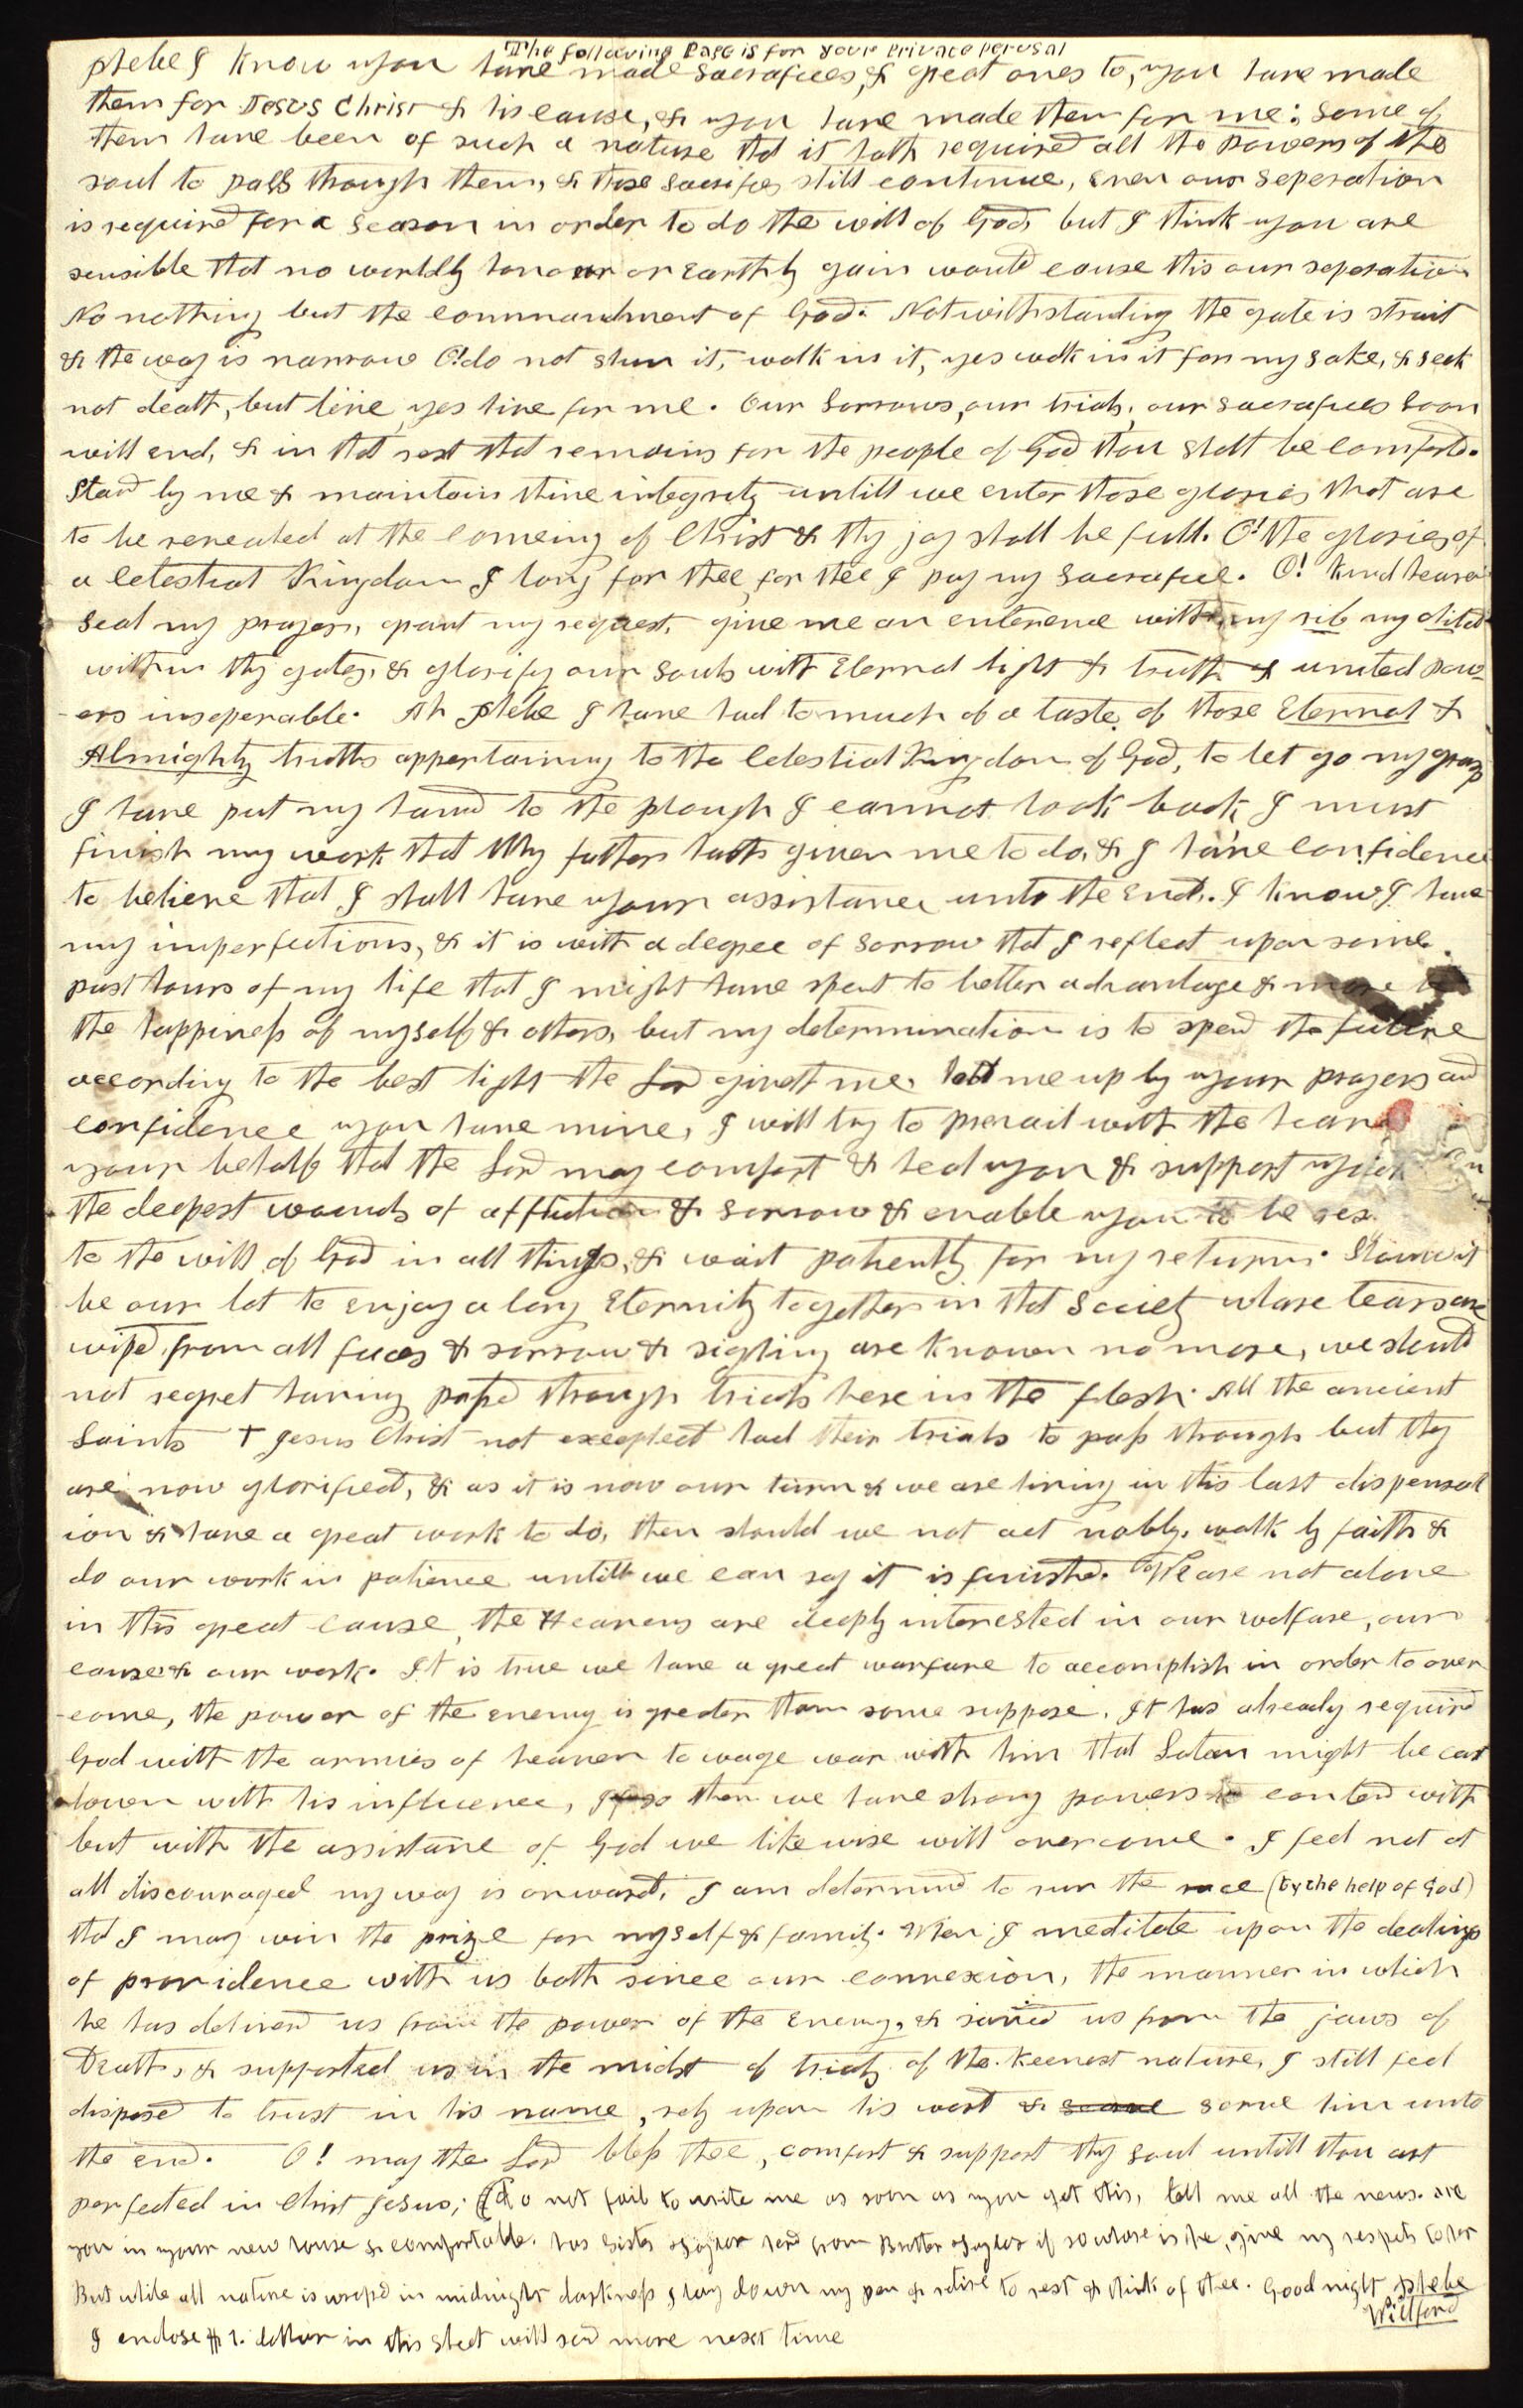 The following Page is for your Private perusal
Phebe I know you have made Sacrafices, & great ones to, you have made
them for Jesus Christ & his cause, & you have made them for me; Some of
them have been of such a nature that it hath required all the Powers of the
soul to pass through them, & those Sacrifices still continue, even our Seperation
is required for a Season in order to do the will of God, but I think you are
sensible that no worldly honour or Earthly gain would cause this our seperation
No nothing but the commandment of God. Notwithstanding the gate is strait
& the way is narrow O! do not shun it, walk in it, yes walk in it for my sake, & seek
not death, but live, yes live for me. Our Sorrows, our trials, our Sacrafices Soon
will end, & in that rest that remains for the people of God thou shalt be comforted.
Stand by me & maintain thine integrity untill we enter those glories that are
to be revealed at the comeing of Christ & thy joy shall be full. O! the glories of
a Celestial Kingdom I long for thee, for thee I pay my Sacrafice. O! kind heaven
Seal my prayers, grant my request, give me an enterence with my rib my
within thy gates, & glorify our Souls with Eternal light & truth & united pow-
-ers inseperable. Ah Phebe I have had to much of a taste of those Eternal &
Almighty truths appertaining to the Celestial Kingdom of God, to let go my grasp
I have put my hand to the plough I cannot look back I must
finish my work that My father hath given me to do, & I have confidence
to believe that I shall have your assistance unto the End. I know I have
my imperfections, & it is with a degree of Sorrow that I reflect upon some
past hours of my life that I might have spent to better advantage & more to
the happiness of myself & others, but my determination is to spend the future
according to the best light the Lord giveth me. Hold me up by your prayers and
confidence you have mine, I will try to prevail with the
your behalf that the Lord may comfort & heal you & support you in
the deepest wounds of affliction & Sorrow & enable you to be
to the will of God in all things, & wait patiently for my return. Should it
be our lot to enjoy a long Eternity together in that Society whare tears are
wiped from all faces & sorrow & sighing are known no more, we should
not regret having passed through trials here in the flesh. All the ancient
Saints & Jesus Christ not excepted had their trials to pass through but they
are now glorified, & as it is now our turn & we are living in this last dispensat
ion & have a great work to do, then should we not act nobly, walk by faith &
do our work in patience untill we can say it is finished. We are not alone
in this great cause, the Heavens are deeply interested in our welfare, our
cause & our work. It is true we have a great warfare to accomplish in order to over
-come, the power of the enemy is greater than some suppose. It has already required
God with the armies of heaven to wage war with him that Satan might be cast
down with his influence, If so then we have strong powers to contend with
but with the assistance of God we likewise will overcome. I feel not at
all discouraged my way is onward, I am determined to run the race (by the help of God)
that I may win the prize for myself & family. When I meditate upon the dealings
of providence with us both since our connexion, the manner in which
he has delivered us from the power of the Enemy, & saved us from the jaws of
Death, & supported us in the midst of trials of the keenest nature, I still feel
disposed to trust in his name, rely upon his word & serve him unto
the end. O! may the Lord bless thee, comfort & support thy Soul untill thou art
perfected in Christ Jesus; Do not fail to write me as soon as you get this, tell me all the news. are
you in your new house & comfortable. has Sister Taylor herd from Brother Taylor if so whare is he, give my respects to her
But while all nature is wraped in midnight darkness I lay down my pen & retire to rest & think of thee. Good night Phebe
Willford
I enclose $1. dollar in this sheet will send more next time